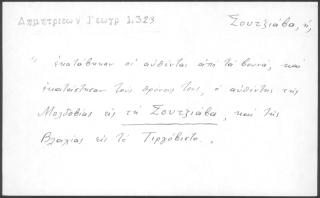 Δημητρίεων Γεωργ 1.323
Σουτζιάβα, ἡ,
" ἐκατέβηκαν οἱ αὐθένται ἀπό τά βουνά, καί
ἐκατέστησαν τούς θρόνους τους, ὁ αὐθέντης τῆς
Μολδοβίας εἰς τή Σουτζιάβα, καί τῆς
Βλαχίας εἰς τό Τιργόβιστο.